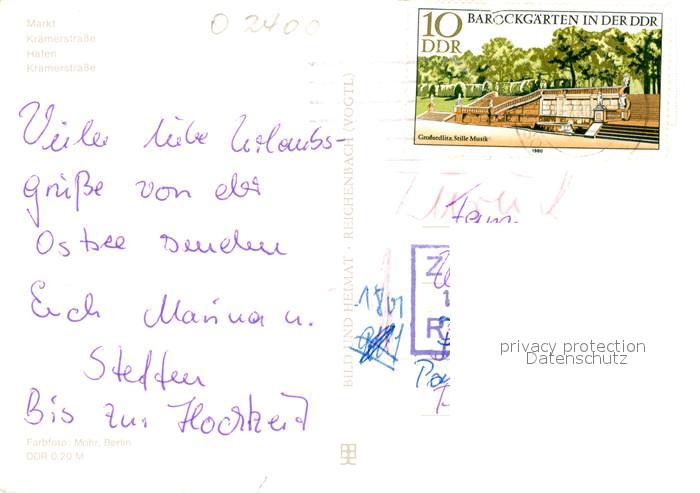 Markt
Krämerstraße
Hafen
Krämerstraße
O 2400
10 BAROCKGÄRTEN IN DER DDR
DDR
Großsedlitz, Stille Musik
1980
Viele liebe Urlaubs-
grüße von der
Ostsee senden
Euch Marina u.
Steffen
Bis zur Hochzeit
Farbfoto: Mohr, Berlin
DDR 0,20 M
BILD UND HEIMAT · REICHENBACH (VOGTL)
Zurück
Fam.
1801
Z
R
privacy protection
Datenschutz